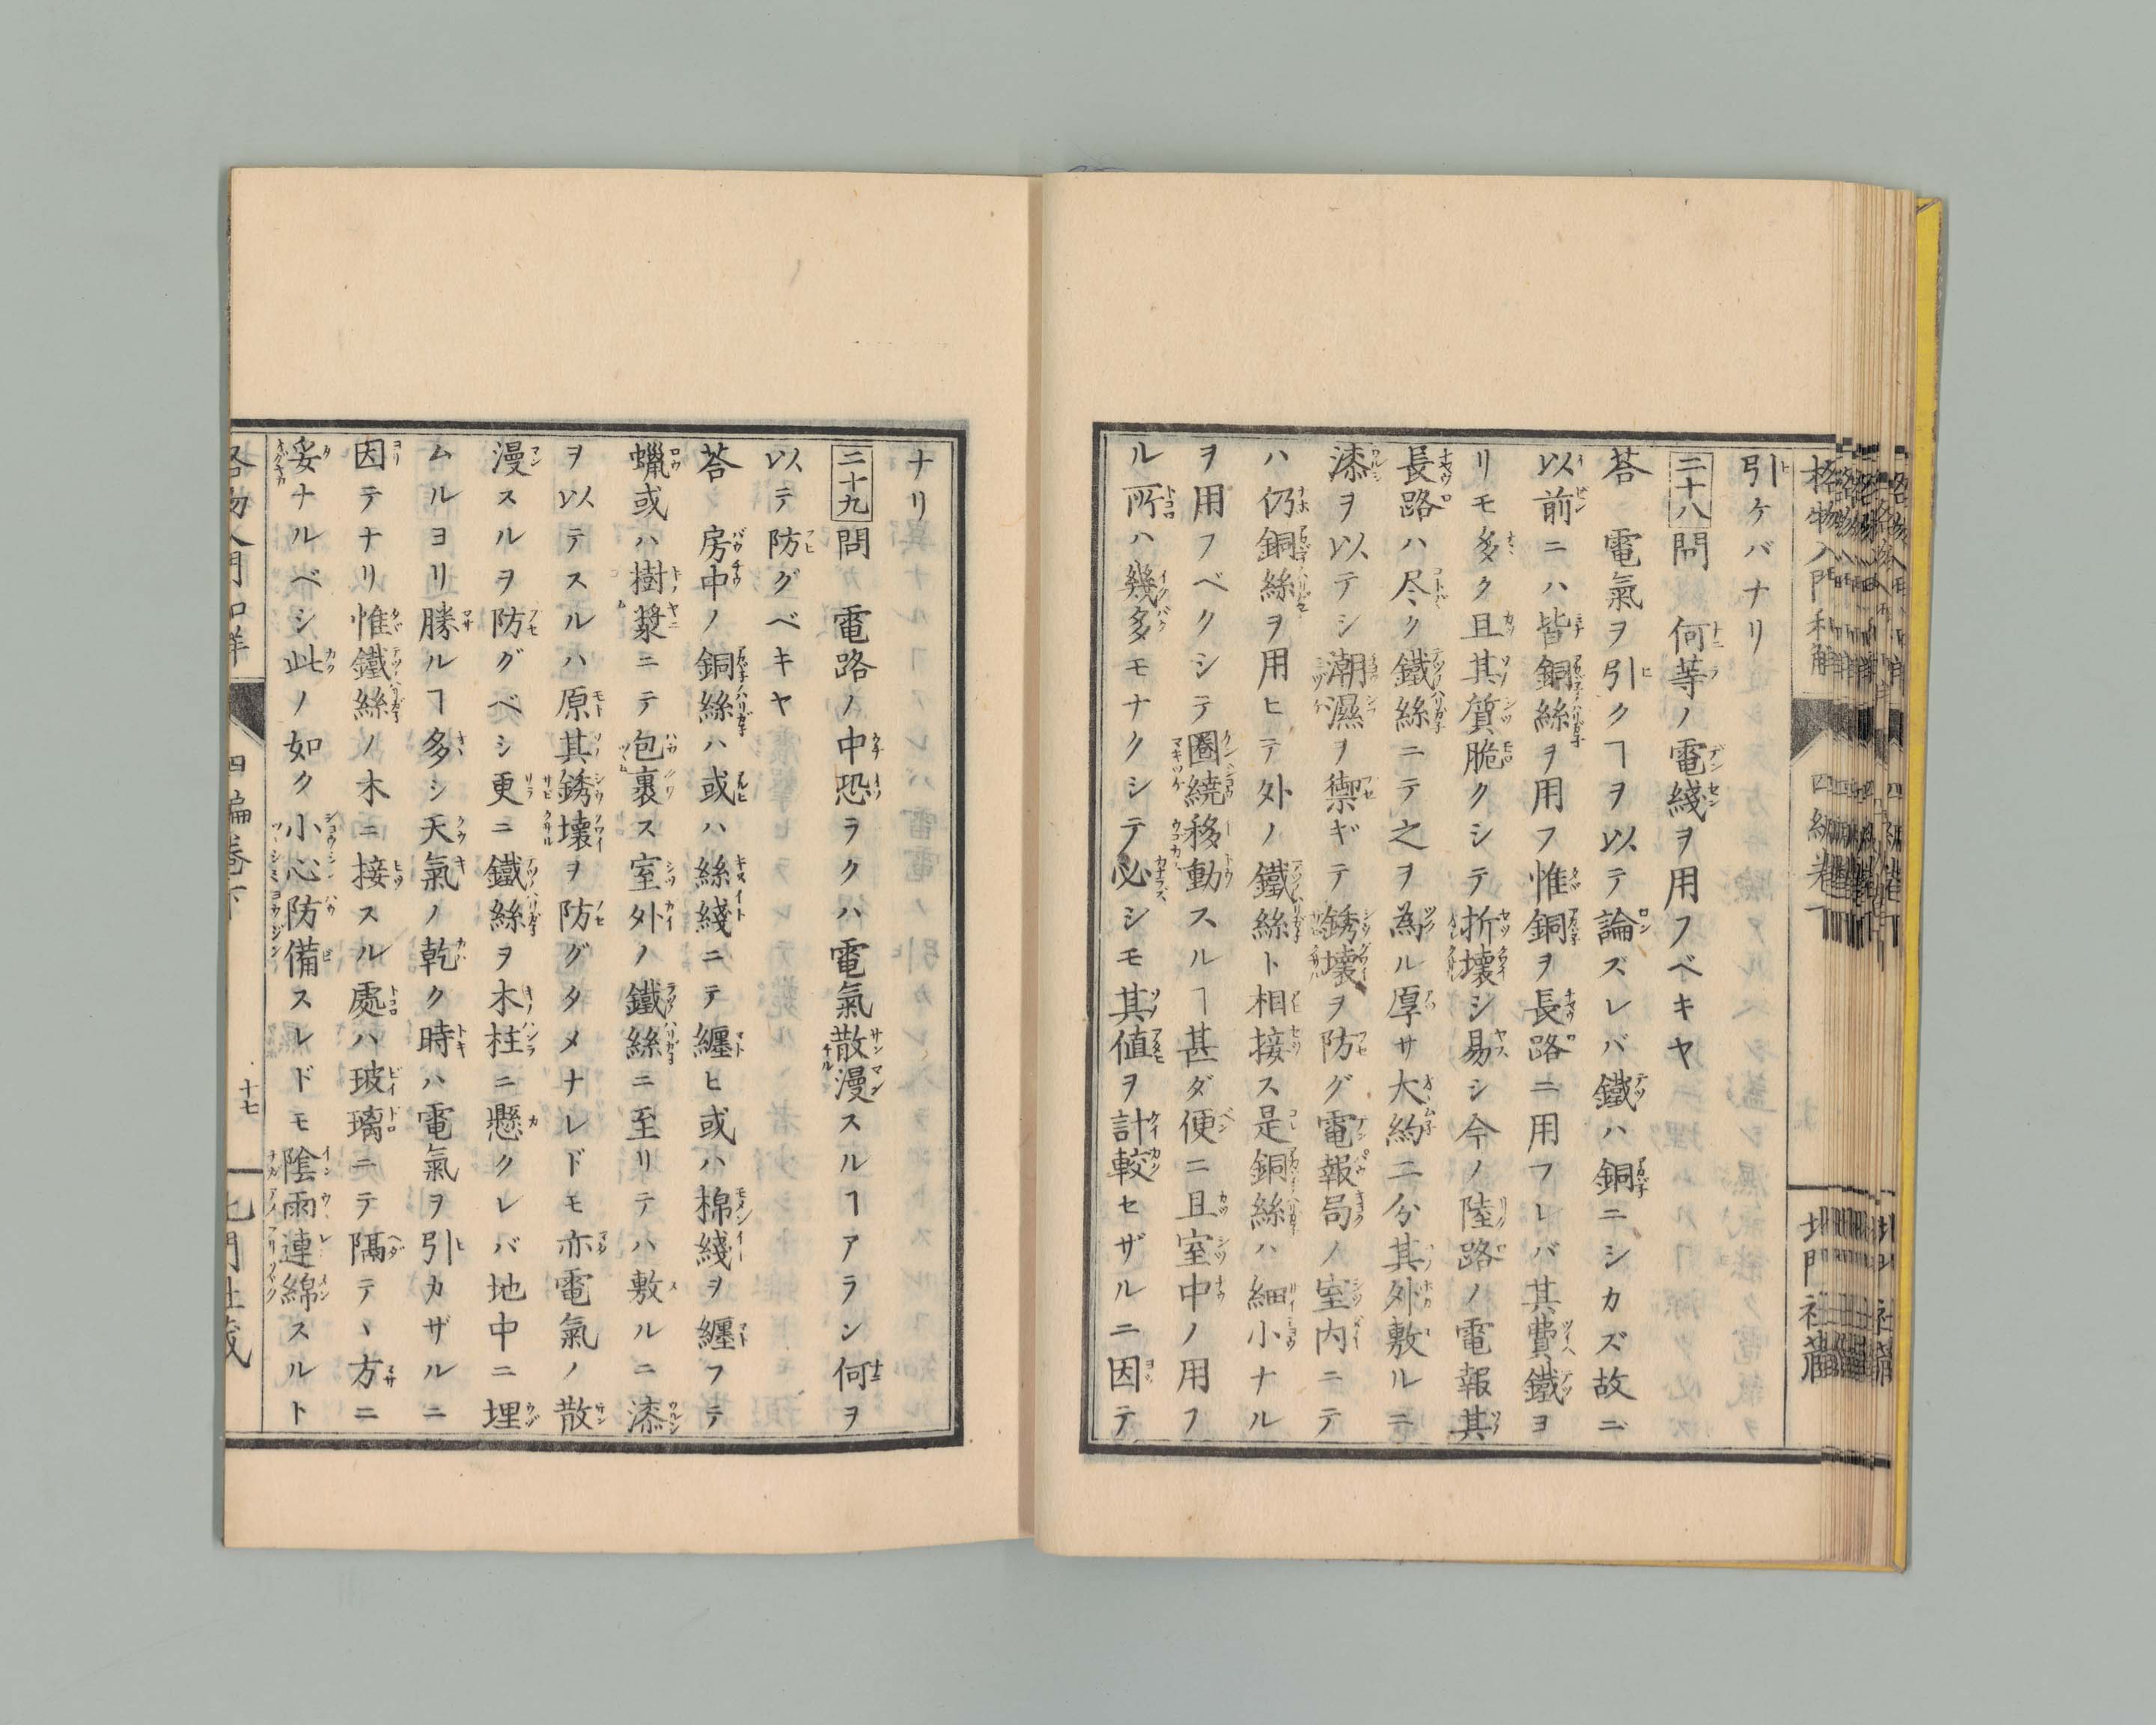 格物入門和解
四編巻下
北門社蔵
引ケバナリ
二十八問 何等ノ電綫ヲ用フベキヤ
荅 電氣ヲ引クヿヲ以テ論ズレバ鐵ハ銅ニシカズ故ニ
以前ニハ皆銅絲ヲ用フ惟銅ヲ長路ニ用フレバ其費鐵ヨ
リモ多ク且其質脆クシテ折壊シ易シ今ノ陸路ノ電報其
長路ハ尽ク鐵絲ニテ之ヲ為ル厚サ大約二分其外敷ルニ
漆ヲ以テシ潮濕ヲ禦ギテ銹壊ヲ防グ電報局ノ室内ニテ
ハ仍銅絲ヲ用ヒテ外ノ鐵絲ト相接ス是銅絲ハ細小ナル
ヲ用フベクシテ圏繞移動スルヿ甚ダ便ニ且室中ノ用フ
ル所ハ幾多モナクシテ必シモ其値ヲ計較セザルニ因テ
ナリ
二十九問 電路ノ中恐ラクハ電氣散漫スルヿアラン何ヲ
以テ防グベキヤ
荅 房中ノ銅絲ハ或ハ絲綫ニテ纏ヒ或ハ棉綫ヲ纏フテ
蠟或ハ樹漿ニテ包裹ス室外ノ鐵絲ニ至リテハ敷ルニ漆
ヲ以テスルハ原其銹壊ヲ防グタメナレドモ亦電氣ノ散
漫スルヲ防グベシ更ニ鐵絲ヲ木柱ニ懸クレバ地中ニ埋
ムルヨリ勝ルヿ多シ天氣ノ乾ク時ハ電氣ヲ引カザルニ
因テナリ惟鐵絲ノ木ニ接スル處ハ玻璃ニテ隔テヽ方ニ
妥ナルベシ此ノ如ク小心防備スレドモ陰雨連綿スルト
格物入門和解
四編巻下
十七
北門社蔵